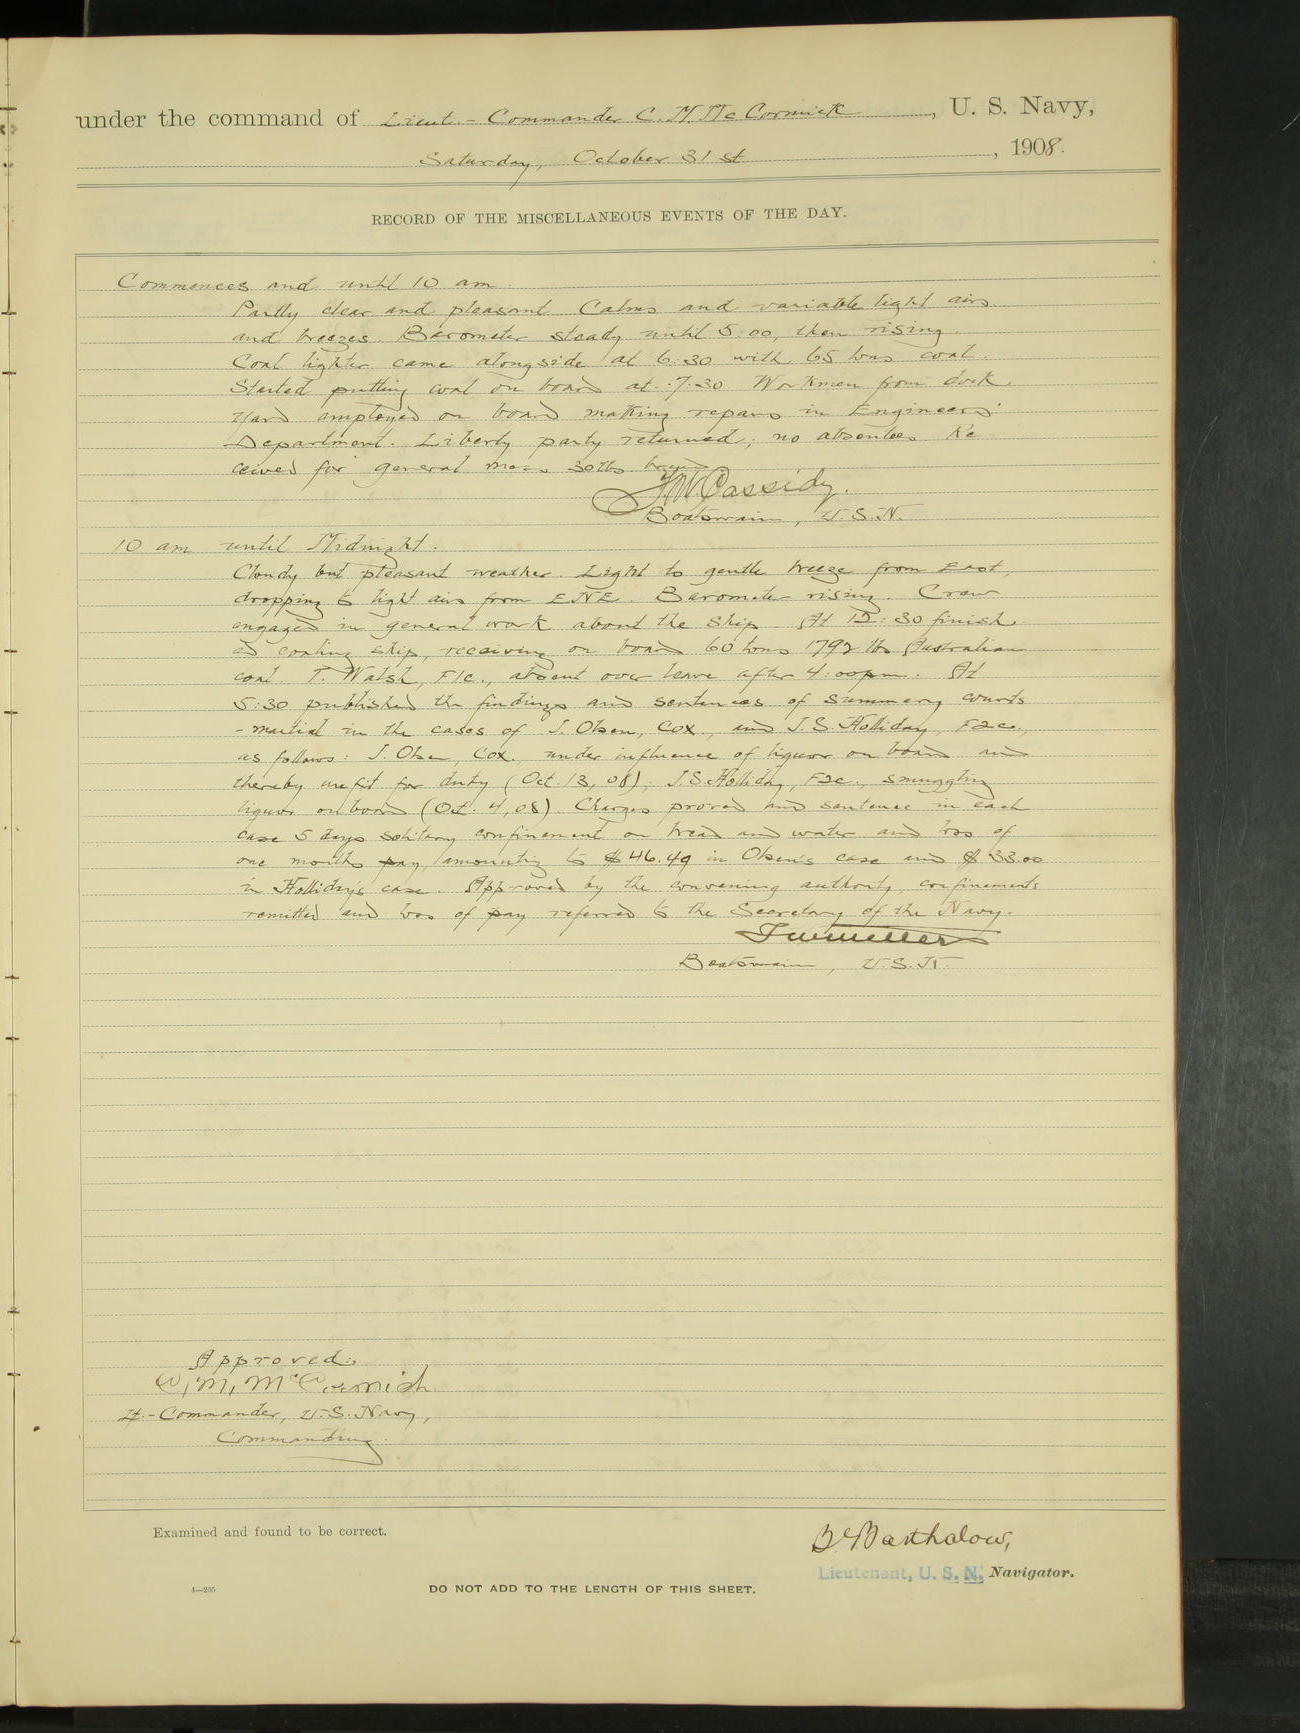 under the command of Lieut.-Commander C. M. McCormick, U. S. Navy,
Saturday, October 31st, 1908.
RECORD OF THE MISCELLANEOUS EVENTS OF THE DAY.
Commences and until 10 am.
Partly clear and pleasant Calms and variable light airs
and breezes. Barometer steady until 5:00, then rising.
Coal lighter came alongside at 6:30 with 65 tons coal.
Started putting coal on board at 7:30 Workmen from dock
yard employed on board making repairs in Engineers'
Department. Liberty party returned; no absentees Re
ceived for general mess 30 lbs bread
Cassidy.
Boatswain, U.S.N.
10 am until Midnight.
Cloudy but pleasant weather. Light to gentle breeze from East,
dropping to light airs from ENE. Barometer rising. Crew
engaged in general work about the ship. At 12:30 finish
ed coaling ship, receiving on board 60 tons 1792 lbs Australian
coal. T. Walsh, F1c., absent over leave after 4:00 pm. At
5:30 published the findings and sentences of summary courts
-martial in the cases of J. Olsen, Cox., and J. S. Holliday, F2c.,
as follows: J. Olsen, Cox., under influence of liquor on board and
thereby unfit for duty (Oct. 13, 08); J. S. Holliday, F2c., smuggling
liquor on board (Oct. 4, 08). Charges proved and sentence in each
case 5 days solitary confinement on bread and water and loss of
one months pay, amounting to $46.49 in Olsen's case and $33.00
in Holliday's case. Approved by the convening authority, confinements
remitted and loss of pay referred to the Secretary of the Navy.
Boatswain, U.S.N.
Approved:
C. M. McCormick
Lt.-Commander, U.S. Navy,
Commanding.
Examined and found to be correct.
Barthalow,
Lieutenant, U. S. N. Navigator.
4—265
DO NOT ADD TO THE LENGTH OF THIS SHEET.